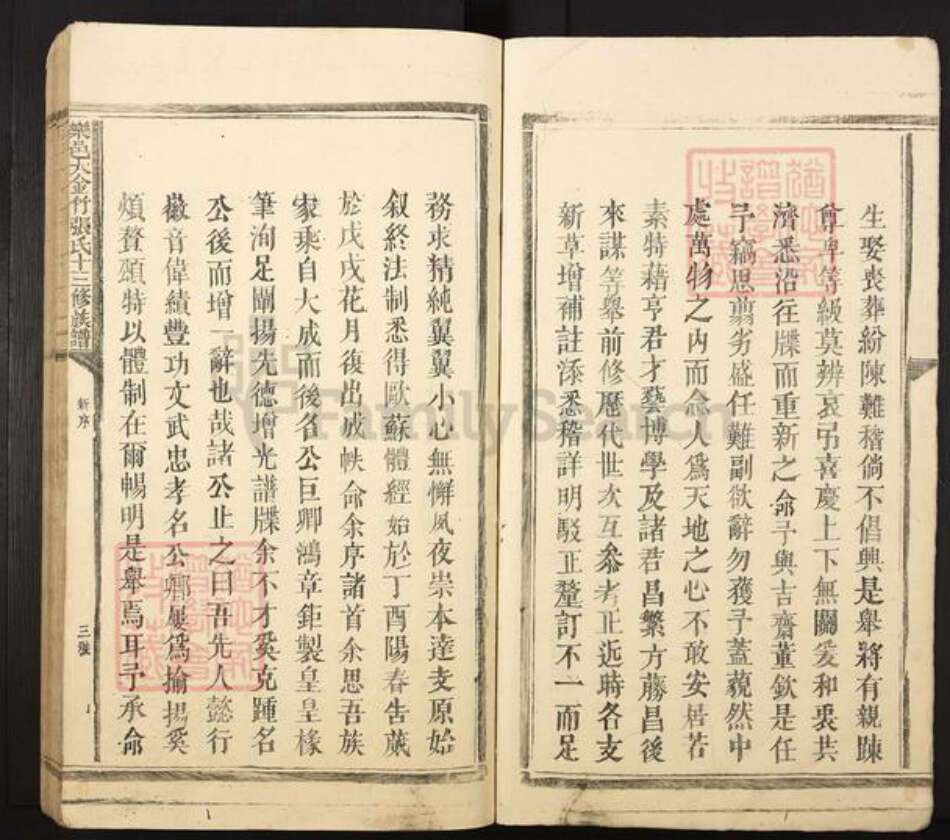 生娶喪葬紛陳難稽倘不倡興是舉將有親踈
尊卑等級莫辨哀弔喜慶上下無關爰和衷共
濟悉沿往牒而重新之命予與吉齋董欽是任
予竊思翦劣盛任難副欲辭勿獲予蓋藐然中
處萬物之內而念人爲天地之心不敢安居若
素特藉亨君才藝博學及諸君昌繁方藤昌後
來謀等舉前修歷代世次互叅考正近時各支
新草增補註添悉稽詳明駁正釐訂不一而足
務求精純翼翼小心無懈夙夜崇本達支原始
叙終法制悉得歐蘇體經始於丁酉陽春告蕆
於戊戌花月復出成帙命余序諸首余思吾族
家乘自大成而後名公巨卿鴻章鉅製皇皇椽
筆洵足闡揚先德增光譜牒余不才奚克踵名
公後而增一辭也哉諸公止之曰吾先人懿行
徽音偉績豐功文武忠孝名公鄉屢爲揄揚奚
煩贅頌特以體制在爾暢明是舉焉耳予承命
樂邑大金竹張氏十三修族譜
新序
三號
FamilySearch